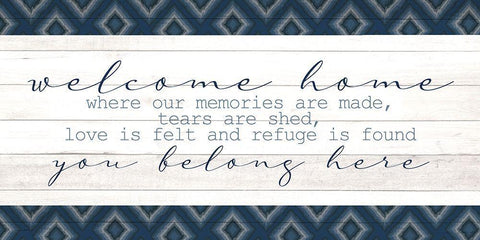 welcome home
where our memories are made,
tears are shed,
love is felt and refuge is found
you belong here